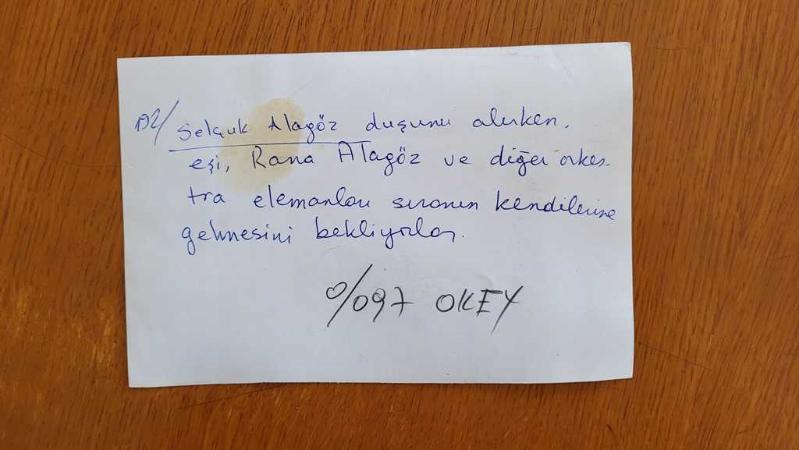 192/ Selçuk Alagöz duşunu alırken,
eşi, Rana Alagöz ve diğer orkes-
tra elemanları sıranın kendilerine
gelmesini bekliyorlar.
0/097 OKEY